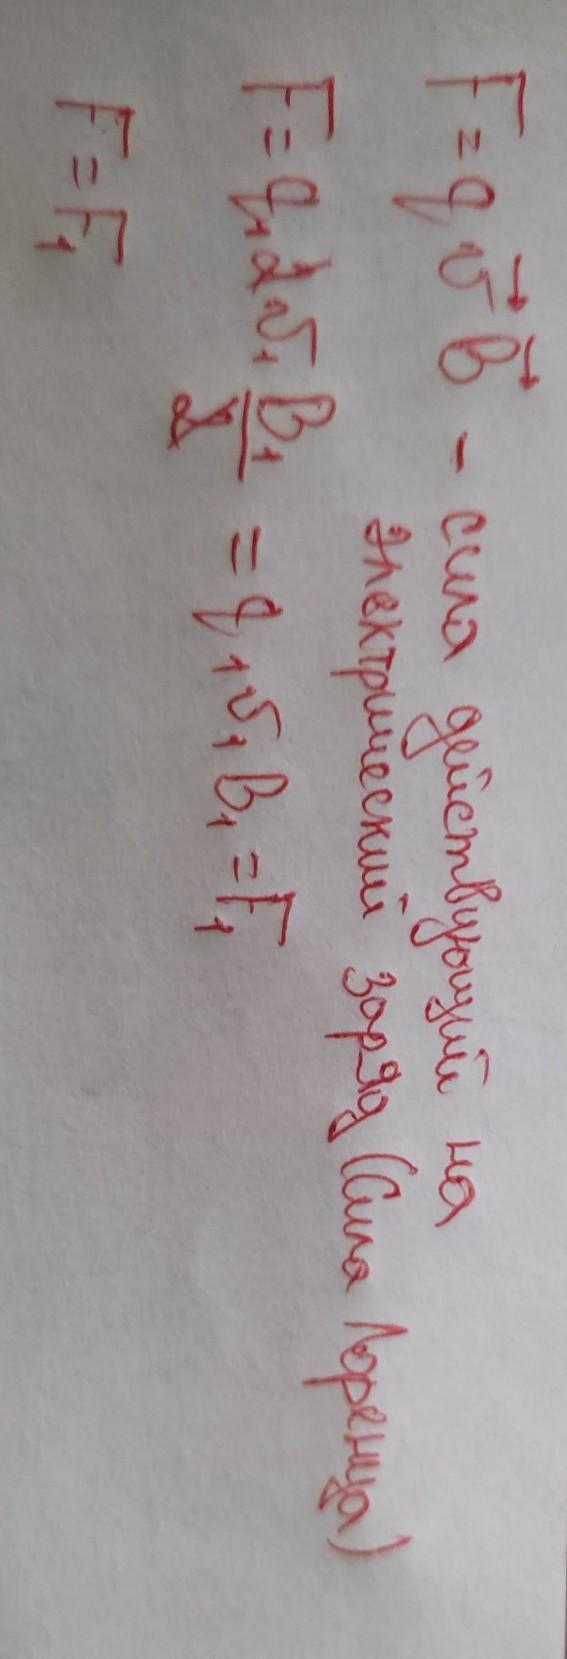 F = q v⃗ B⃗ - сила действующий на
электрический заряд (Сила Лоренца)
F = q₁ 2 v₁ B₁/2 = q₁ v₁ B₁ = F₁
F = F₁